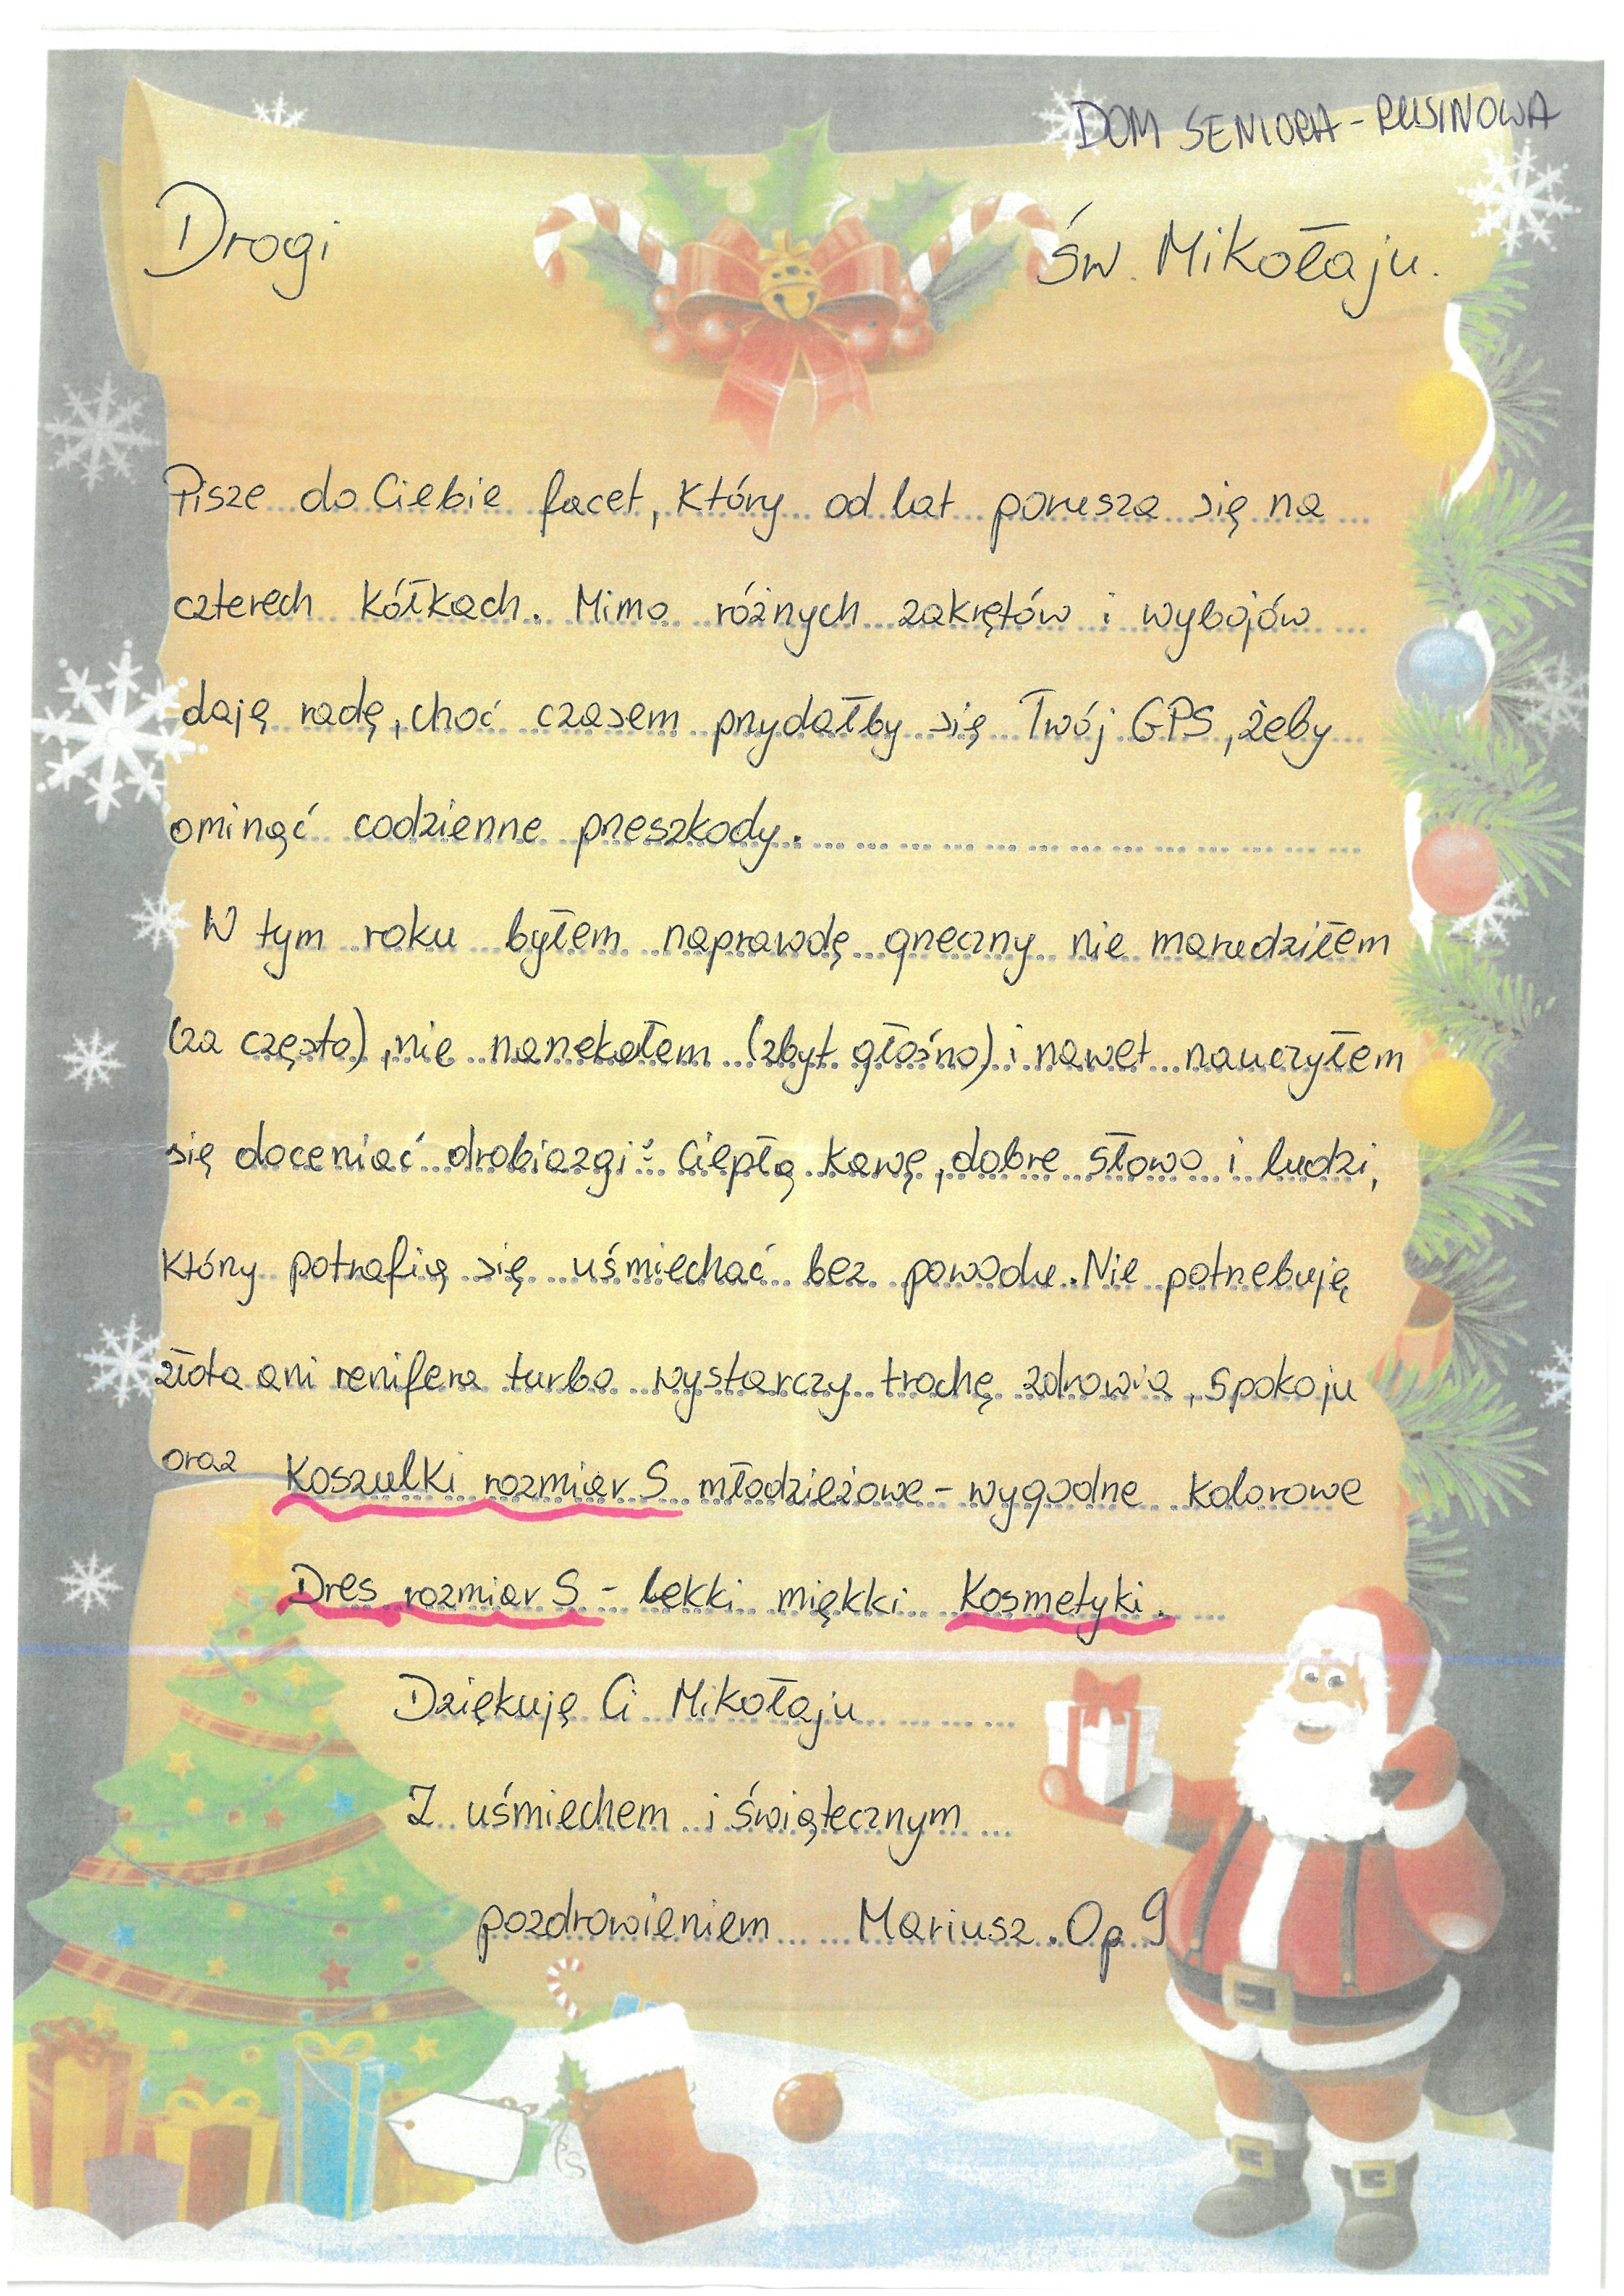 DOM SENIORA - RUSINOWA
Drogi św. Mikołaju.
Pisze do Ciebie facet, który od lat porusza się na
czterech kółkach. Mimo różnych zakrętów i wybojów
daję radę, choć czasem przydałby się Twój GPS, żeby
ominąć codzienne przeszkody.
W tym roku byłem naprawdę grzeczny nie marudziłem
(za często), nie narzekałem (zbyt głośno) i nawet nauczyłem
się doceniać drobiazgi: Ciepłą kawę, dobre słowo i ludzi,
który potrafią się uśmiechać bez powodu. Nie potrzebuję
złota ani renifera turbo wystarczy trochę zdrowia, spokoju
oraz Koszulki rozmiar S młodzieżowe - wygodne kolorowe
Dres rozmiar S - lekki miękki Kosmetyki.
Dziękuję Ci Mikołaju
Z uśmiechem i świątecznym
pozdrowieniem Mariusz. Op 9